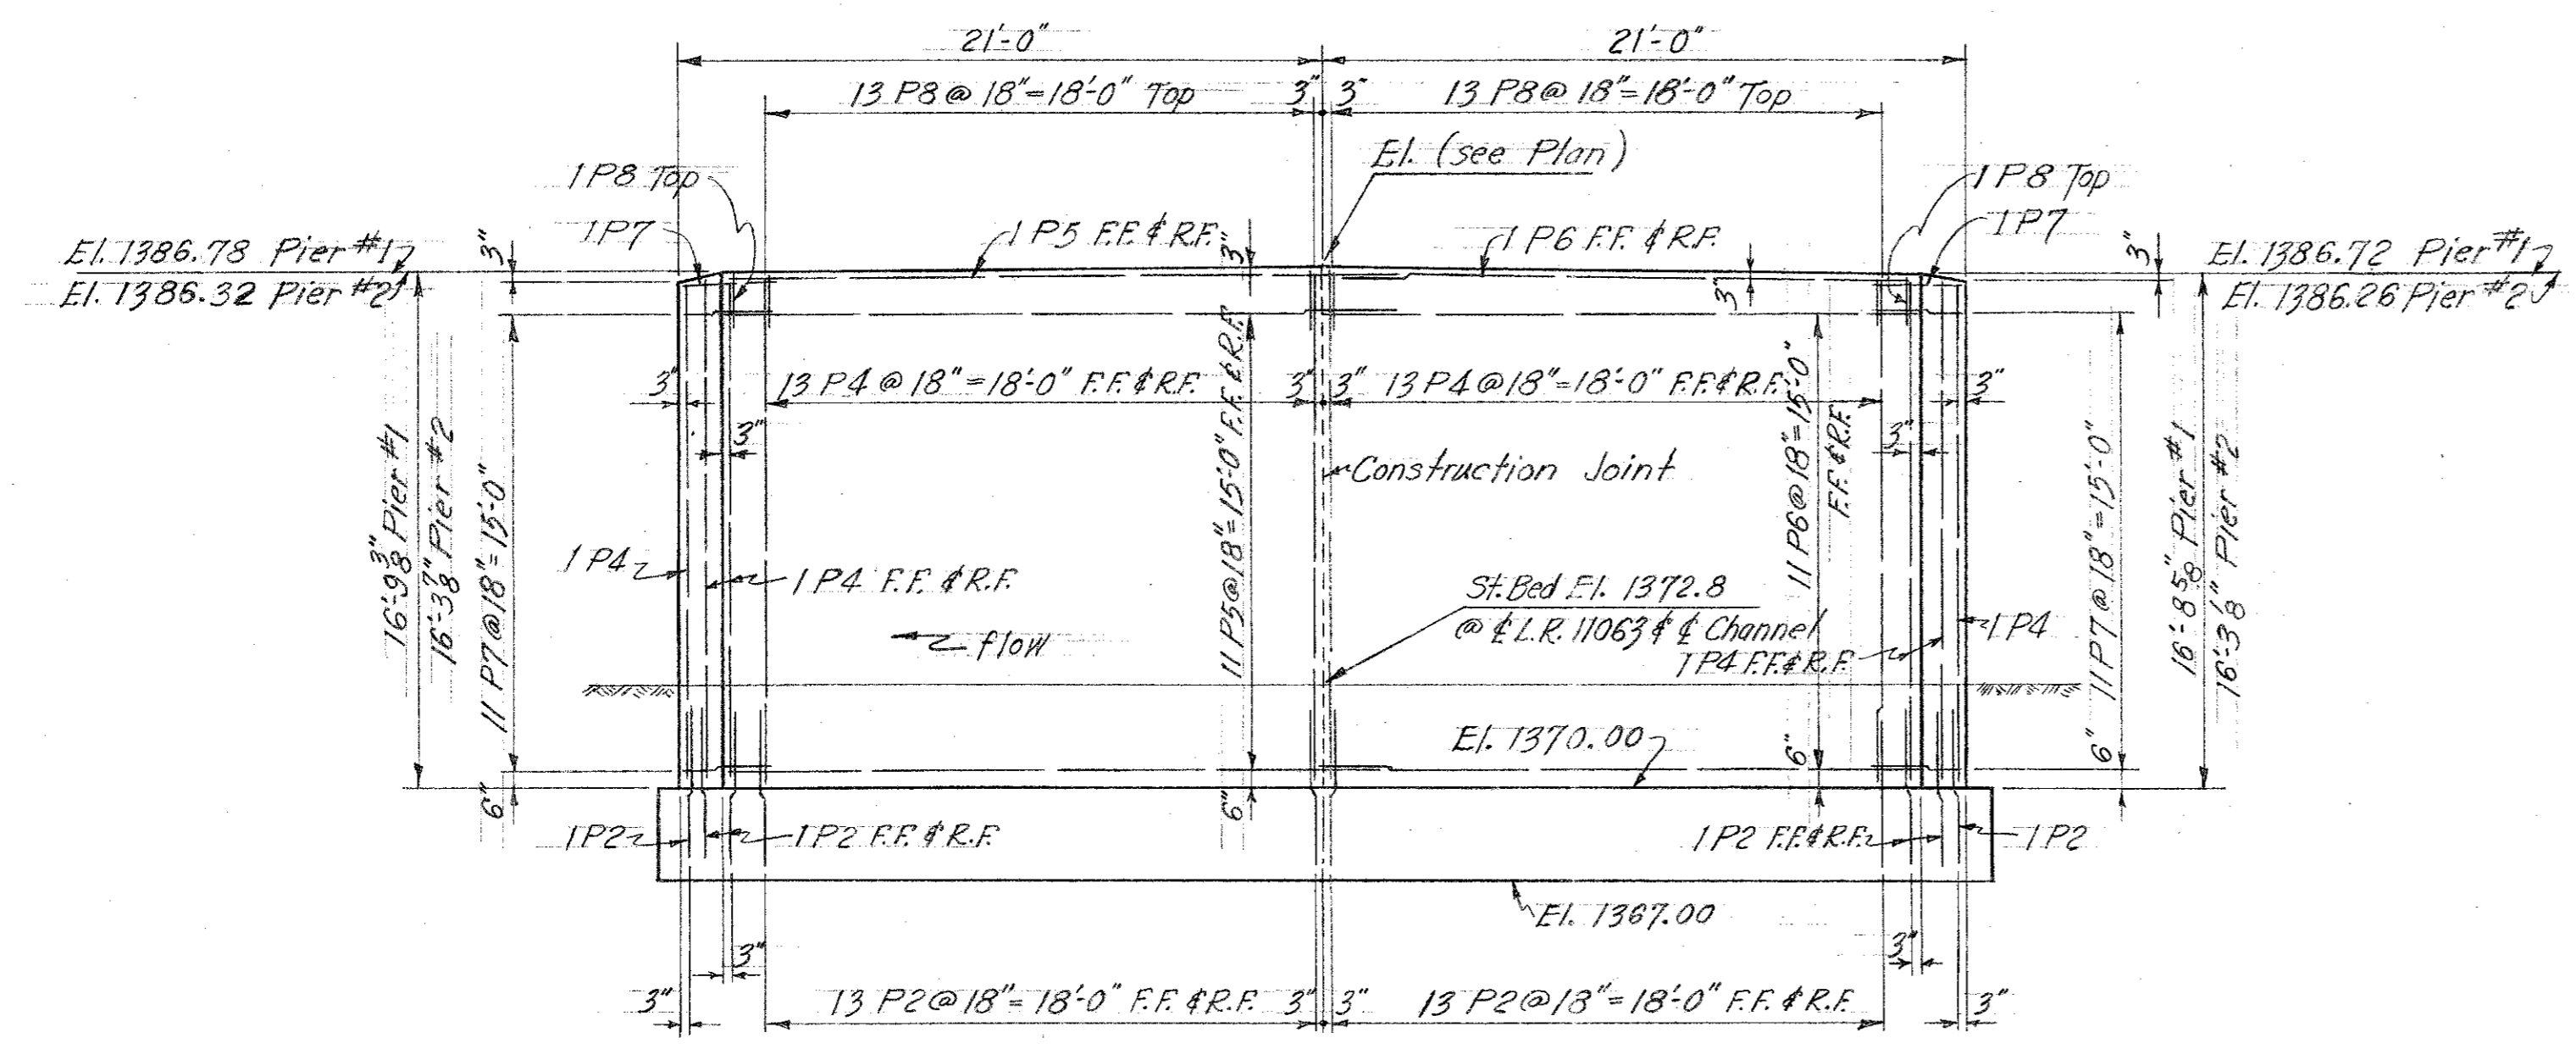 21'-0" 21'-0"
13 P8 @ 18"=18'-0" Top 3" 3" 13 P8 @ 18"=18'-0" Top
El. (see Plan)
1 P8 Top 1 P8 Top
1 P7 1 P5 F.F. & R.F. 1 P6 F.F. & R.F. 1 P7
El. 1386.78 Pier #1 3" 3" 3" El. 1386.72 Pier #1
El. 1386.32 Pier #2 3" El. 1386.26 Pier #2
3" 13 P4 @ 18"=18'-0" F.F. & R.F. 3" 3" 13 P4 @ 18"=18'-0" F.F. & R.F. 3"
3" 3"
16'-9 3/8" Pier #1
16'-3 7/8" Pier #2
11 P7 @ 18"=15'-0"
11 P5 @ 18"=15'-0" F.F. & R.F.
11 P6 @ 18"=15'-0"
F.F. & R.F.
11 P7 @ 18"=15'-0"
16'-8 5/8" Pier #1
16'-3 1/8" Pier #2
Construction Joint
1 P4 1 P4 F.F. & R.F.
St. Bed El. 1372.8
@ ℄ L.R. 11063 & ℄ Channel
1 P4 F.F. & R.F. 1 P4
flow
El. 1370.00
6" 6" 6" 6"
1 P2 1 P2 F.F. & R.F. 1 P2 F.F. & R.F. 1 P2
El. 1367.00
3" 3"
3" 13 P2 @ 18"=18'-0" F.F. & R.F. 3" 3" 13 P2 @ 18"=18'-0" F.F. & R.F. 3"